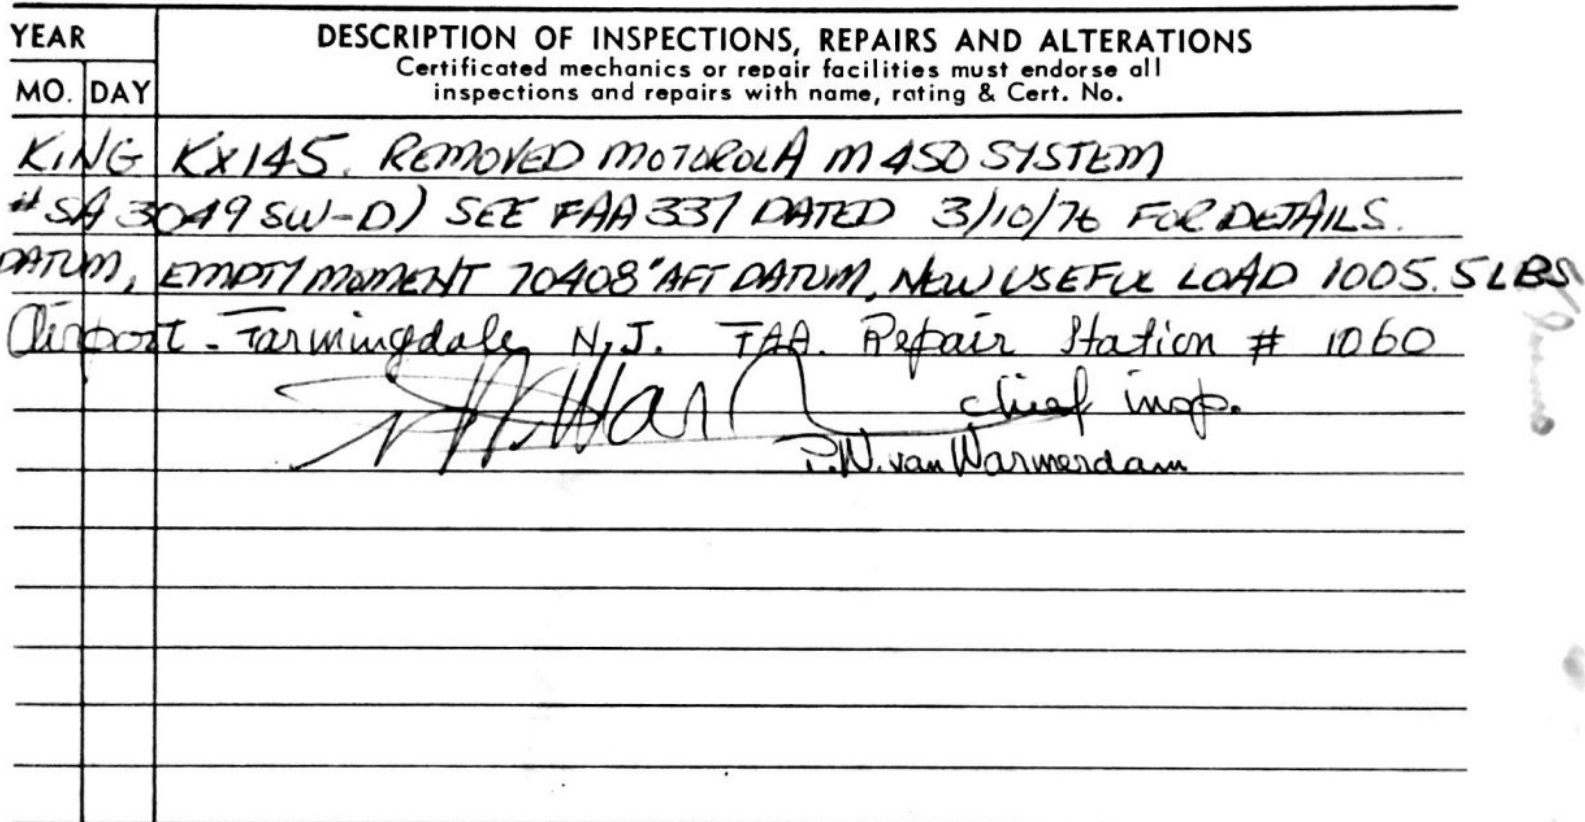 YEAR
DESCRIPTION OF INSPECTIONS, REPAIRS AND ALTERATIONS
Certificated mechanics or repair facilities must endorse all
MO. DAY
inspections and repairs with name, rating & Cert. No.
KING KX145. REMOVED MOTOROLA M450 SYSTEM
#SA3049SW-D) SEE FAA 337 DATED 3/10/76 FOR DETAILS.
DATUM, EMPTY MOMENT 70408" AFT DATUM, NEW USEFUL LOAD 1005.5 LBS
Airport - Farmingdale, N.J. FAA. Repair Station # 1060
chief insp.
P.W. van Warmerdam